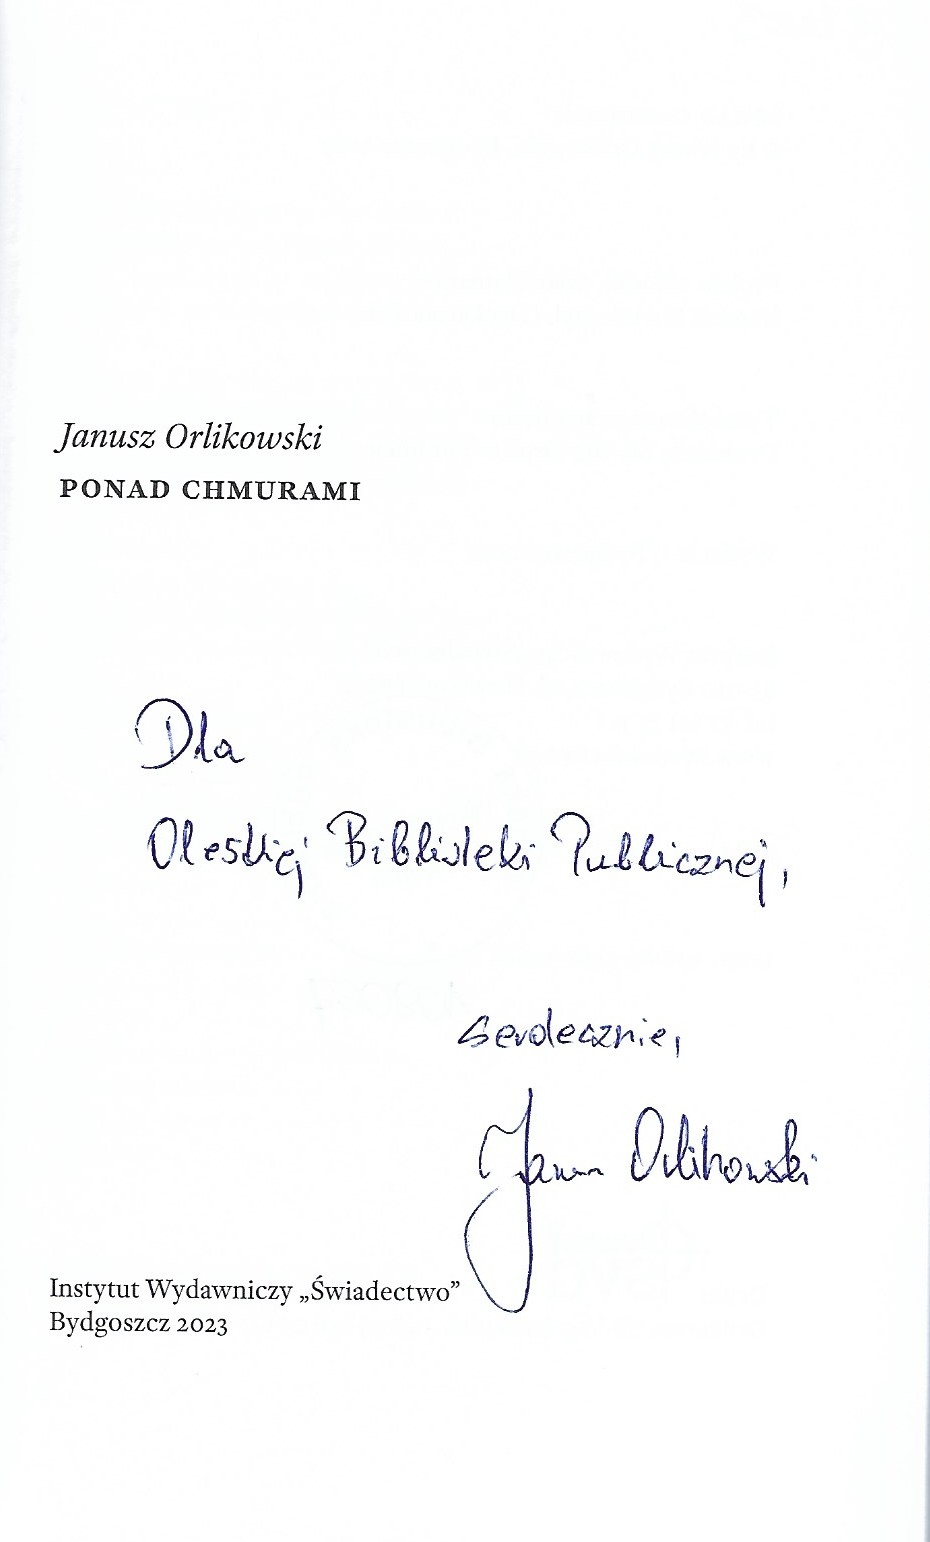 Janusz Orlikowski
PONAD CHMURAMI
Dla
Oleskiej Biblioteki Publicznej,
serdecznie,
Janusz Orlikowski
Instytut Wydawniczy „Świadectwo”
Bydgoszcz 2023